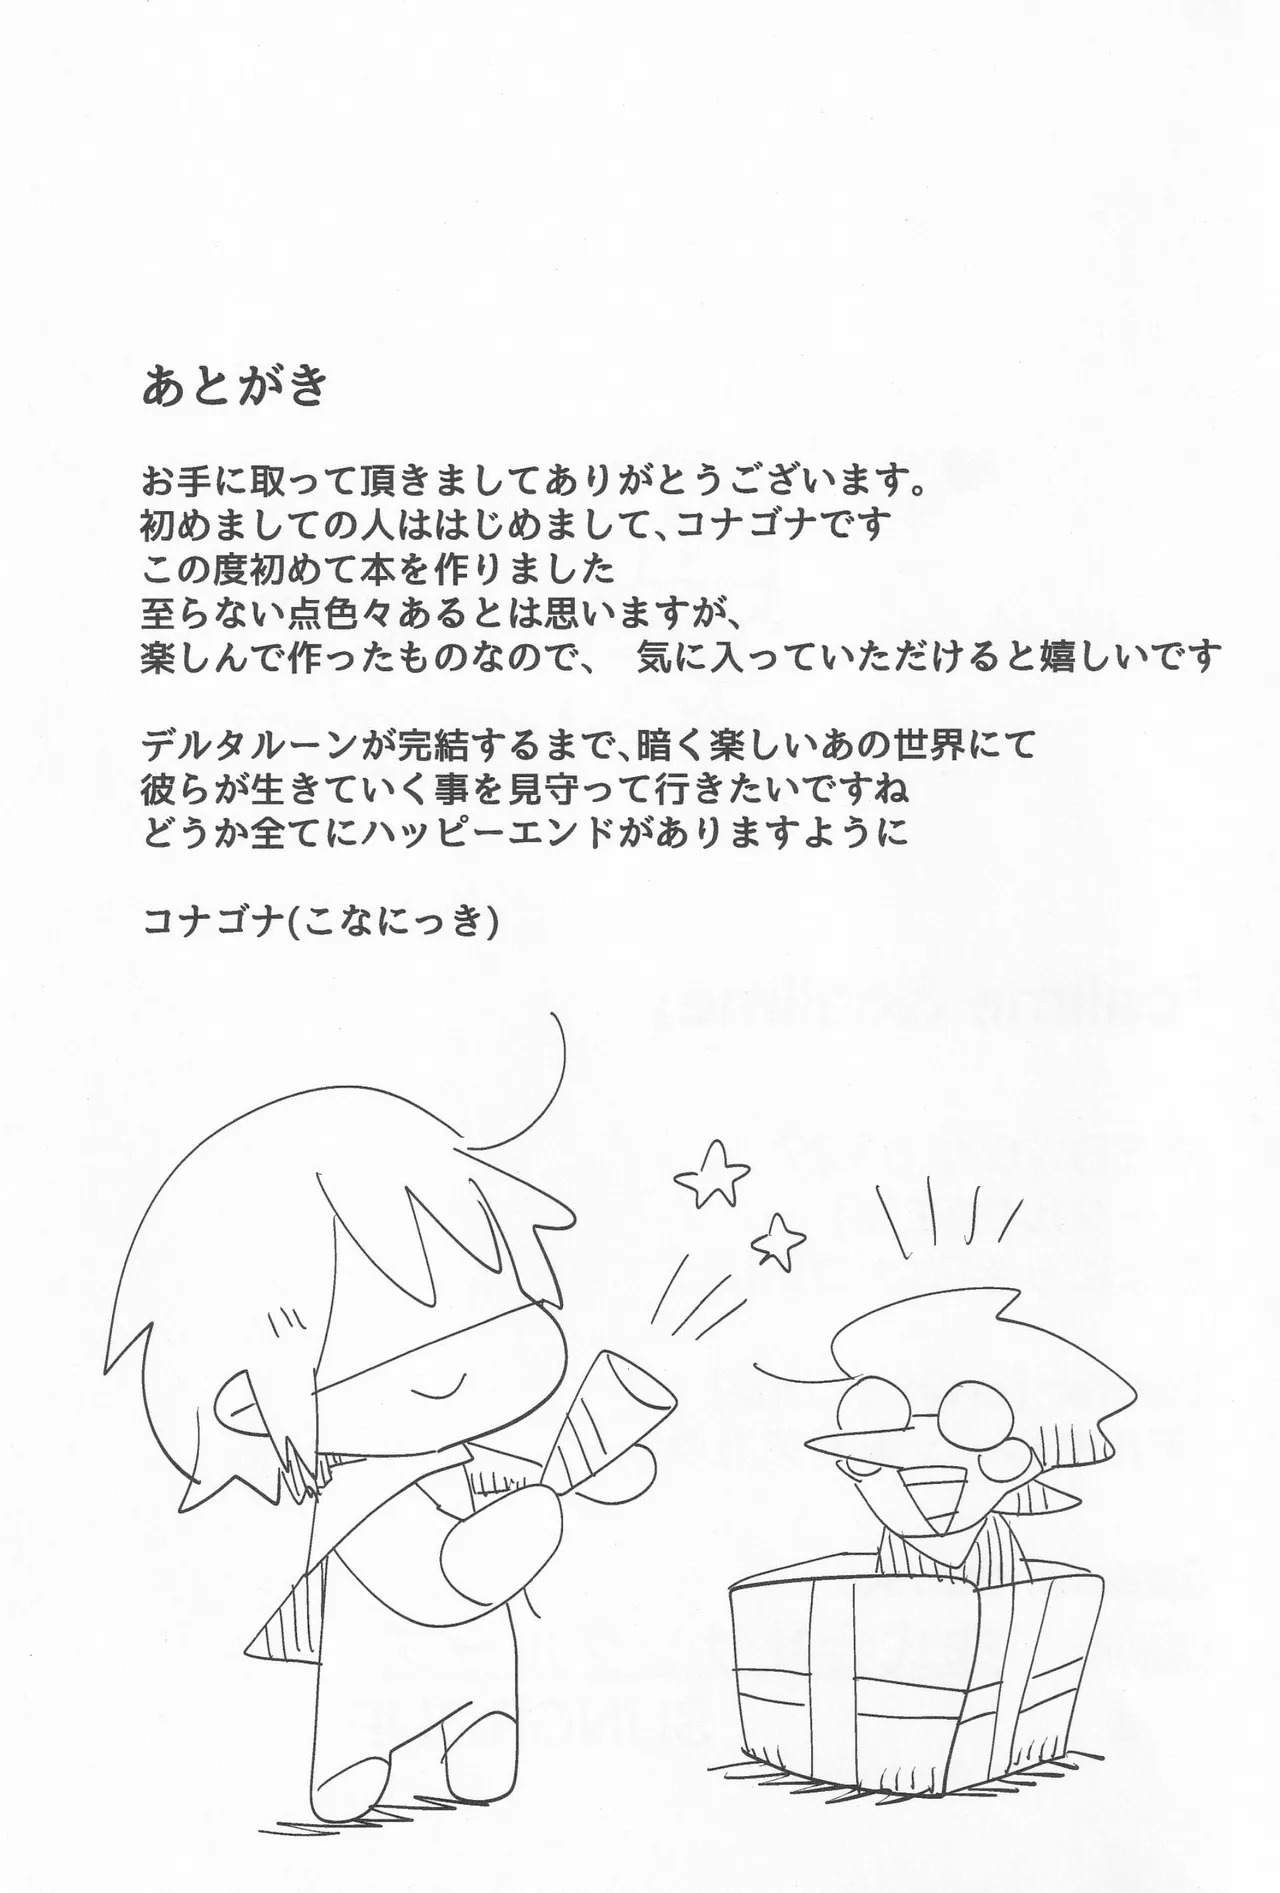 あとがき
お手に取って頂きましてありがとうございます。
初めましての人ははじめまして、コナゴナです
この度初めて本を作りました
至らない点色々あるとは思いますが、
楽しんで作ったものなので、　気に入っていただけると嬉しいです
デルタルーンが完結するまで、暗く楽しいあの世界にて
彼らが生きていく事を見守って行きたいですね
どうか全てにハッピーエンドがありますように
コナゴナ(こなにっき)